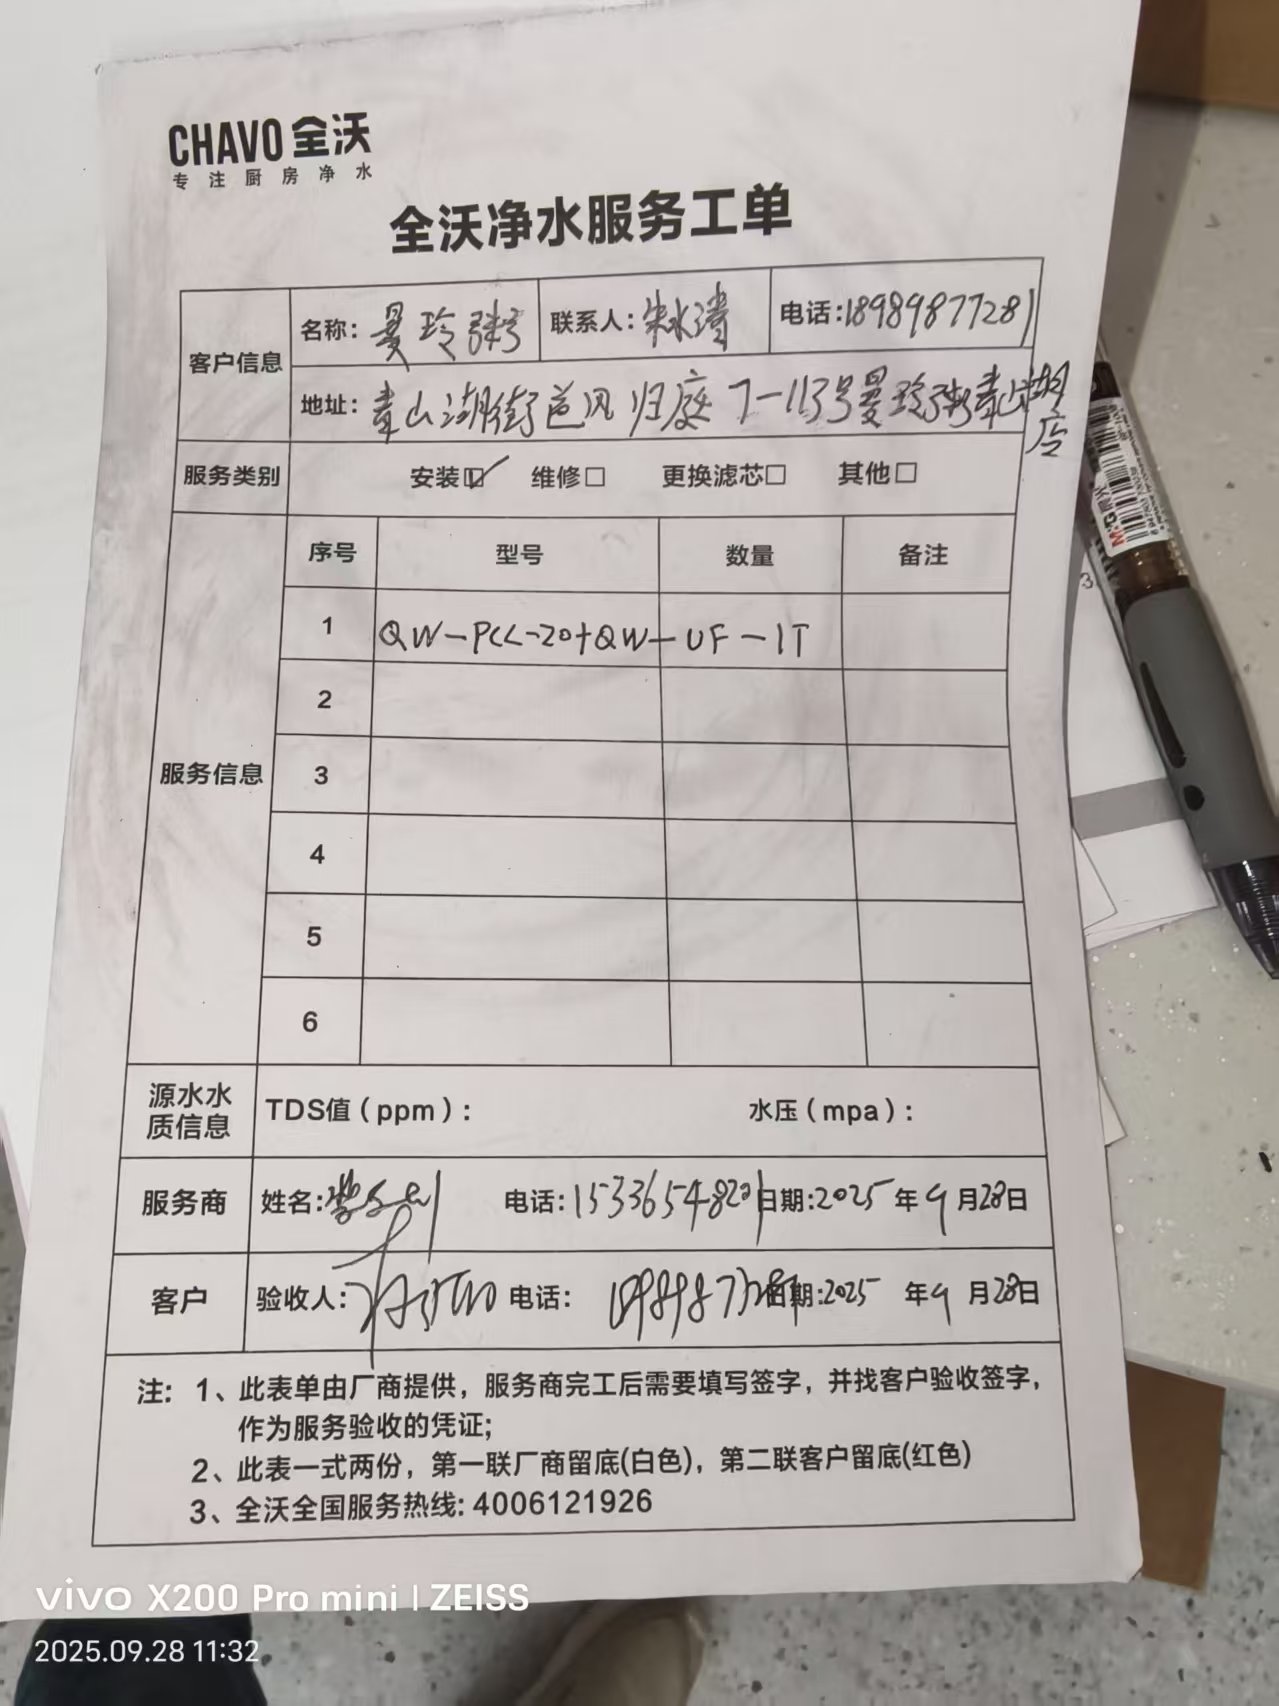 CHAVO 全沃
专注厨房净水
全沃净水服务工单
客户信息
名称: 曼玲粥 联系人: 朱水清 电话: 18989877281
地址: 青山湖街道风归庭7-113号曼玲粥青山湖店
服务类别 安装☑ 维修□ 更换滤芯□ 其他□
服务信息
序号 型号 数量 备注
1 QW-PCL-20+QW-UF-1T
2
3
4
5
6
源水水质信息 TDS值(ppm): 水压(mpa):
服务商 姓名: 电话: 15336548201 日期: 2025年9月28日
客户 验收人: 电话: 日期: 2025年9月28日
注: 1、此表单由厂商提供,服务商完工后需要填写签字,并找客户验收签字,
作为服务验收的凭证;
2、此表一式两份,第一联厂商留底(白色),第二联客户留底(红色)
3、全沃全国服务热线: 4006121926
M&G
vivo X200 Pro mini | ZEISS
2025.09.28 11:32